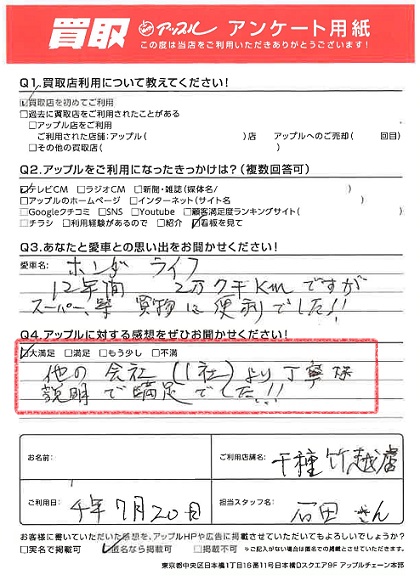 買取 アップル アンケート用紙
この度は当店をご利用いただきありがとうございます!
Q1.買取店利用について教えてください!
☑買取店を初めてご利用
□過去に買取店をご利用されたことがある
□アップル店をご利用
ご利用された店舗:アップル( )店 アップルへのご売却( 回目)
□その他の買取店( )
Q2.アップルをご利用になったきっかけは?(複数回答可)
☑テレビCM □ラジオCM □新聞・雑誌(媒体名/ )
□アップルのホームページ □インターネット(サイト名 )
□Googleクチコミ □SNS □Youtube □顧客満足度ランキングサイト( )
□チラシ □利用経験があるので □紹介 ☑看板を見て
Q3.あなたと愛車との思い出をお聞かせください!
愛車名: ホンダ ライフ
12年間 2万7千Kmですが
スーパー、等 買物に便利でした!!
Q4.アップルに対する感想をぜひお聞かせください!
☑大満足 □満足 □もう少し □不満
他の会社(1社)より丁寧様
説明で満足でした!!!
お名前: ご利用店舗名: 千種竹越店
ご利用日: 4年7月20日 担当スタッフ名: 石田さん
お客様に書いていただいた感想を、アップルHPや広告に掲載させていただいてもよろしいでしょうか?
□実名で掲載可 ☑匿名なら掲載可 □掲載不可 ※ご記入がない場合は匿名での掲載とさせていただきます。
東京都中央区日本橋1丁目16番11号日本橋Dスクエア9F アップルチェーン本部